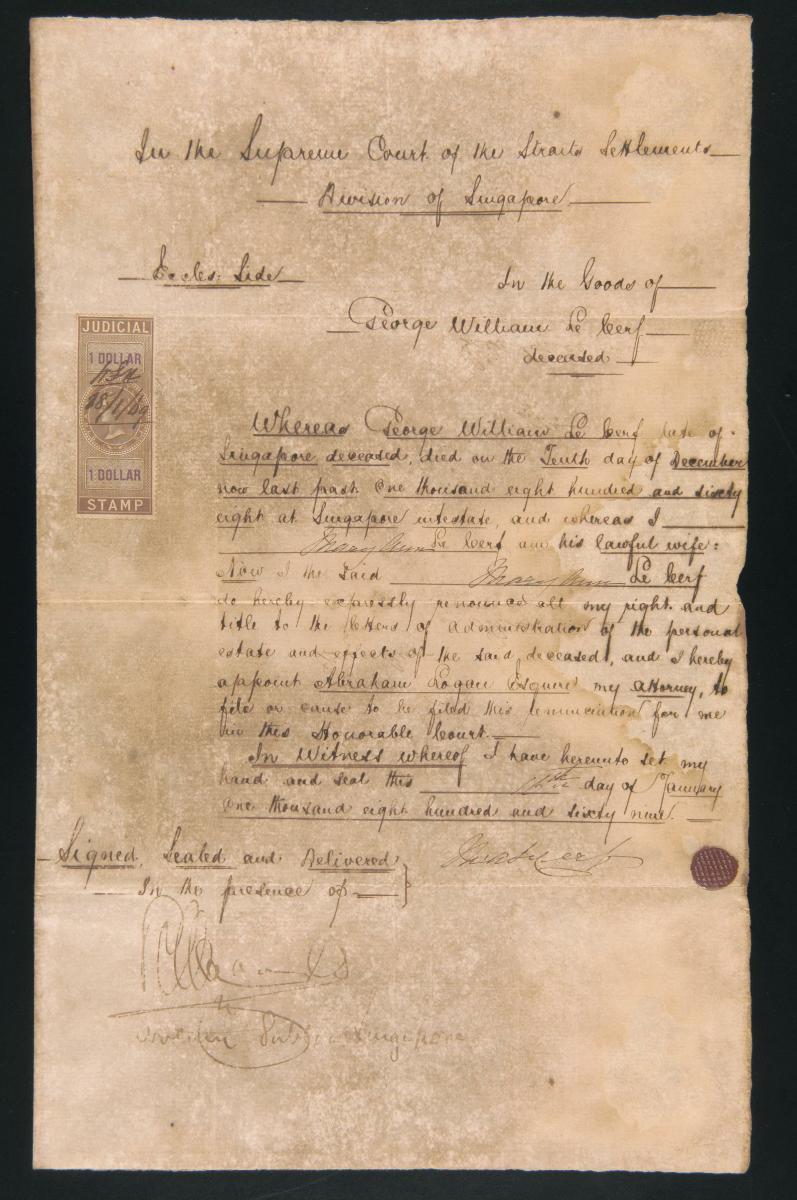 In the Supreme Court of the Straits Settlements
Division of Singapore
Eccles: Side
In the Goods of
George William Le Cerf
deceased
JUDICIAL
1 DOLLAR
18/1/69
1 DOLLAR
STAMP
Whereas George William Le Cerf late of
Singapore deceased, died on the Tenth day of December
now last past One thousand eight hundred and sixty
eight at Singapore intestate, and whereas I
Mary Ann Le Cerf am his lawful wife:
Now I the said Mary Ann Le Cerf
do hereby expressly renounce all my right and
title to the letters of administration of the personal
estate and effects of the said deceased, and I hereby
appoint Abraham Logan Esquire my attorney, to
file or cause to be filed this renunciation for me
in this Honorable Court.
In Witness whereof I have hereunto set my
hand and seal this day of January
One thousand eight hundred and sixty nine.
Signed, Sealed and Delivered
In the presence of
Singapore